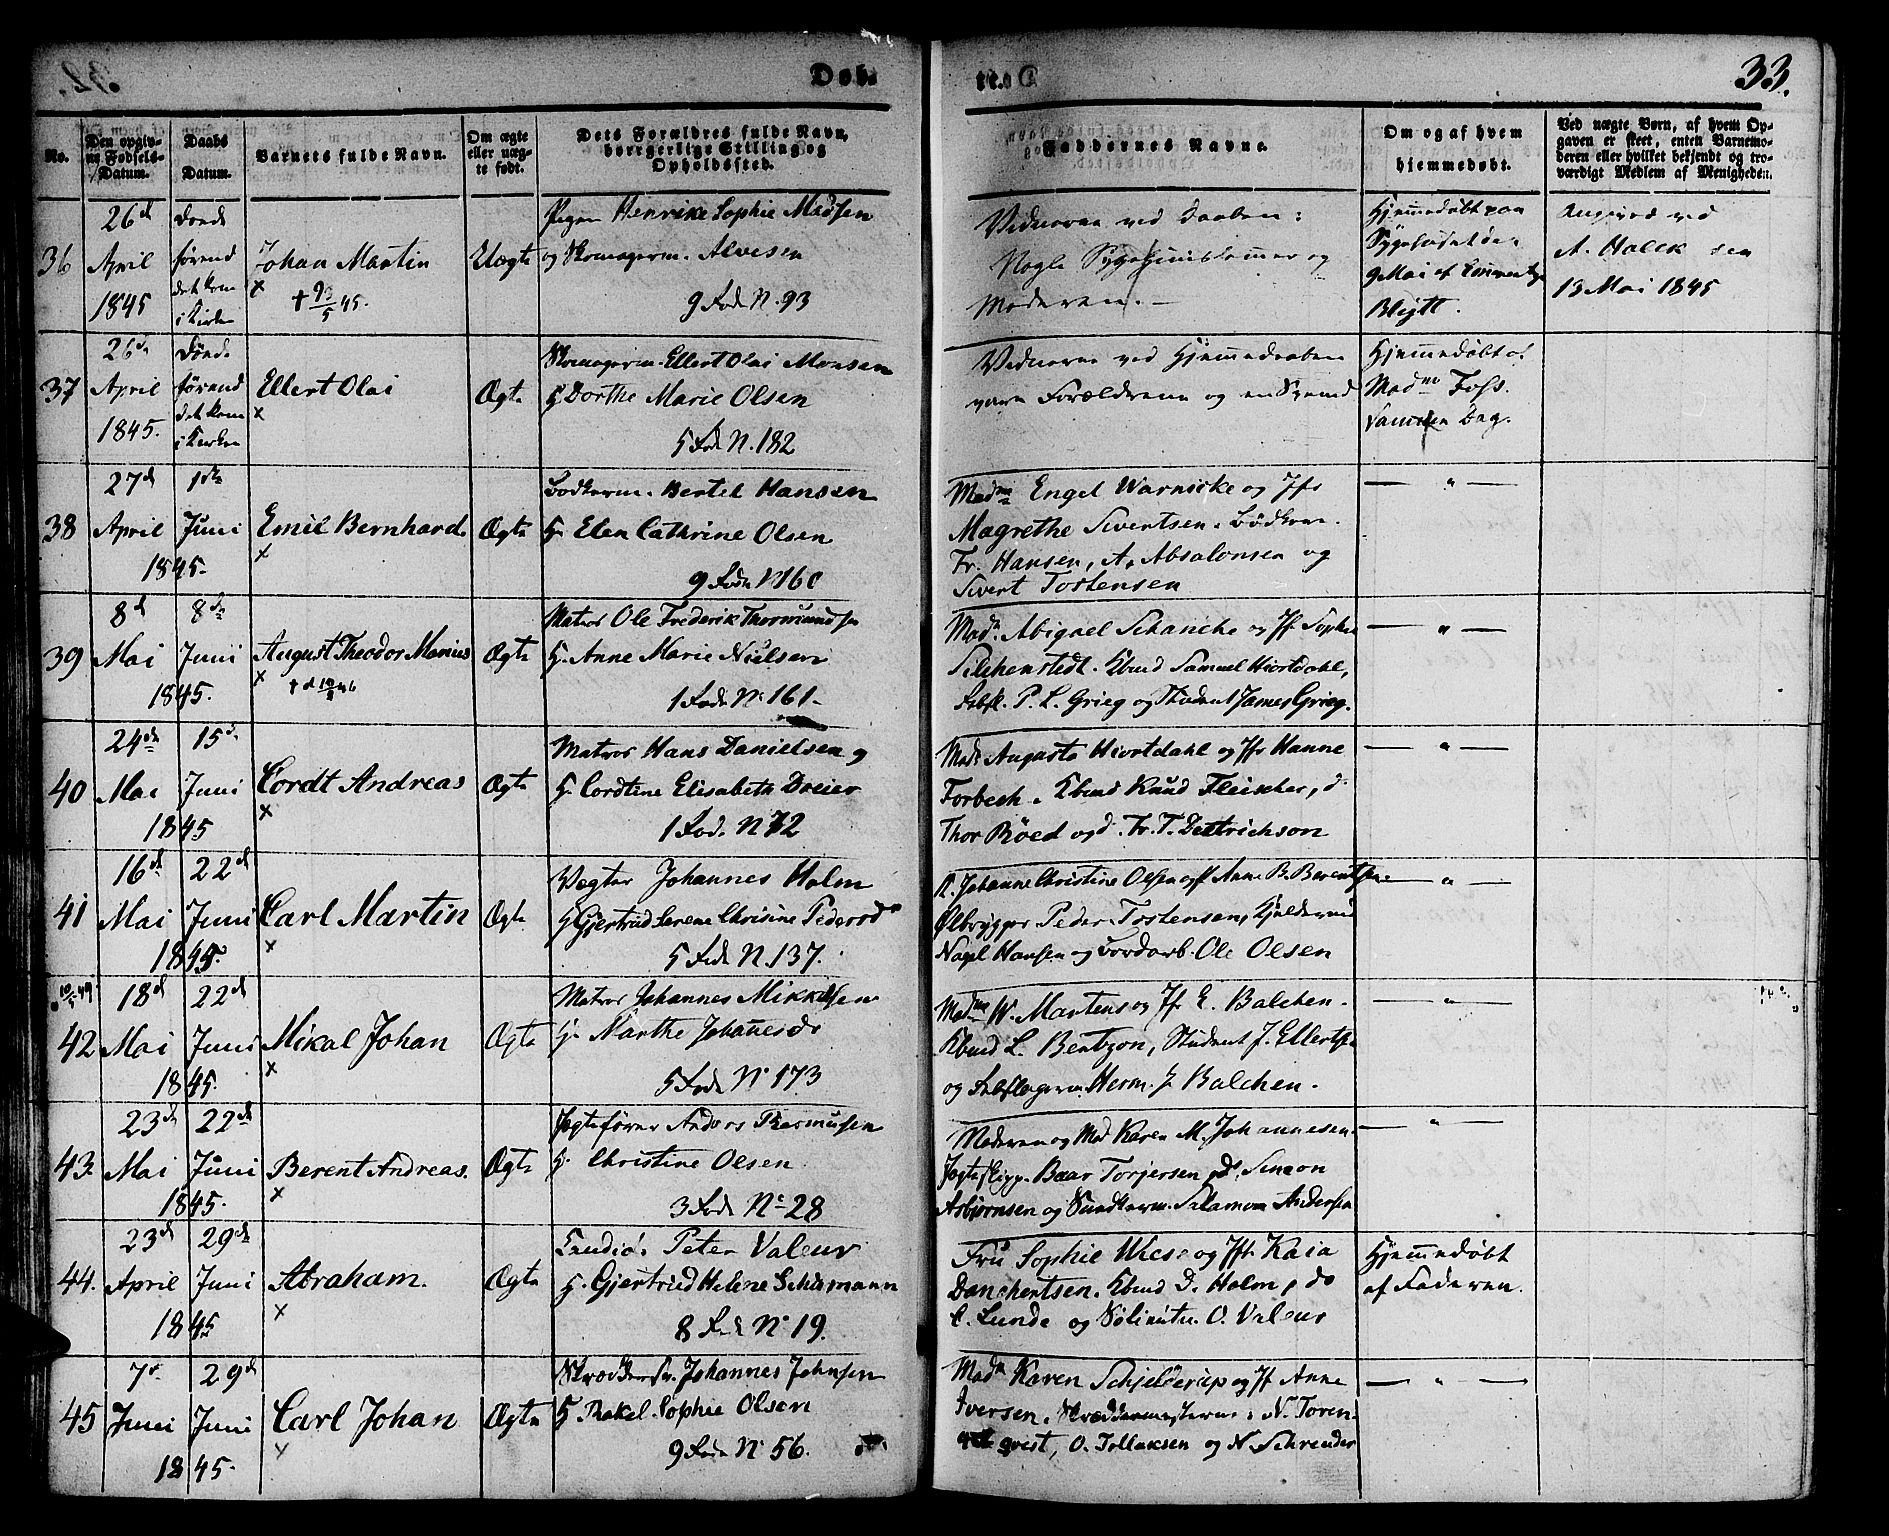 Døb
33.
No.
Den opgiv-
ne Fødsels-
Datum.
Daabs
Datum.
Barnets fulde Navn.
Om ægte
eller uæg-
te født.
Dets Forældres fulde Navn,
borgerlige Stilling og
Opholdssted.
Faddernes Navne.
Om og af hvem
hjemmedøbt.
Ved uægte Børn, af hvem Op-
gaven er skeet, enten Barnemo-
deren eller hvilket bekjendt og tro-
værdigt Medlem af Menigheden.
36
26d
April
1845
førend
det kom
i Kirken
Johan Martin
×
Uægte
Pigen Henrike Sophie Madsen
og Skomagerm. Alvesen
9 Fode N. 93
Vidnerne ved Daaben:
Nogle og
Moderen.
Hjemmedøbt paa
9 Mai af
Blytt.
Angived ved
A. Holck den
13 Mai 1845
37
26de
April
1845.
Døde
førend
det kom
i Kirken
Ellert Olai
×
Ægte
Skomagerm. Ellert Olai Monsen
H. Dorthe Marie Olsen
5 Fode N. 182
Vidnerne ved Hjemmedaaben
vare Forældrene og en
Hjemmedøbt af
Madme Foss.
samme Dag.
38
27d
April
1845.
1ste
Juni
Emil Bernhard.
×
Ægte
Bødkerm. Bertel Hansen
H. Elen Cathrine Olsen
9 Fode N 160
Madme Engel Warnicke og Jfr
Magrethe Sivertsen. Bødkerm.
Fr. Hansen, A. Absalonsen og
Sivert Tostensen
— " —
39
8d
Mai
1845.
8de
Juni
August Theodor Marius
×
Ægte
Matros Ole Frederik Thormundsen
H. Anne Marie Nielsen
1 Fode N. 161.
Madm Abigael Schancke og Jfr Sophie
Silchenstedt. Kbmd Samuel Hiortdahl,
P. L. Grieg og Student James Grieg.
— " —
40
24de
Mai
1845
15d
Juni
Cordt Andreas
×
Ægte
Matros Hans Danielsen og
H. Cordtine Elisabeth Dreier
1 Fod. N 72
Madm Augusta Hiortdahl og Jfr Hanne
Forbech. Kbmd Knud Fleischer, d.
Thor Röed og d. Fr. T. Dettrichson
— " —
41
16d
Mai
1845
22d
Juni
Carl Martin
×
Ægte
Vægter Johannes Holm
H. Gjertrud Serene Chrisine Pedersd
5 Fode N. 137.
K. Johanne Christine Olsen og P. Anne B. Berentsen.
Ølbrygger Peder Tostensen,
Nagel Hansen og Ole Olsen
— " —
42
18d
Mai
1845.
22d
Juni
Mikal Johan
×
Ægte
Matros Johannes Mikkelsen
H. Marthe Johannesdr
5 Fode N. 173
Madme W. Martens og Jfr E. Balchen.
Kbmd L. Bentzon, Student J. Ellertsen
og Herm. J. Balchen.
— " —
43
23d
Mai
1845.
22d
Juni
Berent Andreas.
×
Ægte
Jægtefører Anders Rasmusen
H. Christine Olsen
3 Fode N. 28
Moderen og Mad Karen M. Johannesen.
Jægteskipp. Baar Torjersen, do Simon
Asbjørnsen og Salamon Andersen
— " —
44.
23d
April
1845
29de
Juni
Abraham.
×
Ægte
Peter Valeur
H. Gjertrud Helene Schumann
8 Fode N. 19.
Fru Sophie Wiese og Jfr Kaia
Danchertsen. Kbmd D. Holm, do
C. Lunde og O. Valeur
Hjemmedøbt
af Faderen.
45
7d.
Juni
1845.
29d
Juni
Carl Johan
×
Ægte
Skrædder Johannes Johnsen
H. Rakel Sophie Olsen
9 Fode N. 56.
Madm Karen Schjelderup og Jfr Anne
Iversen. Skræddermesterne: N. Toren-
qvist, O. Tollaksen og N. Schreuder
— " —